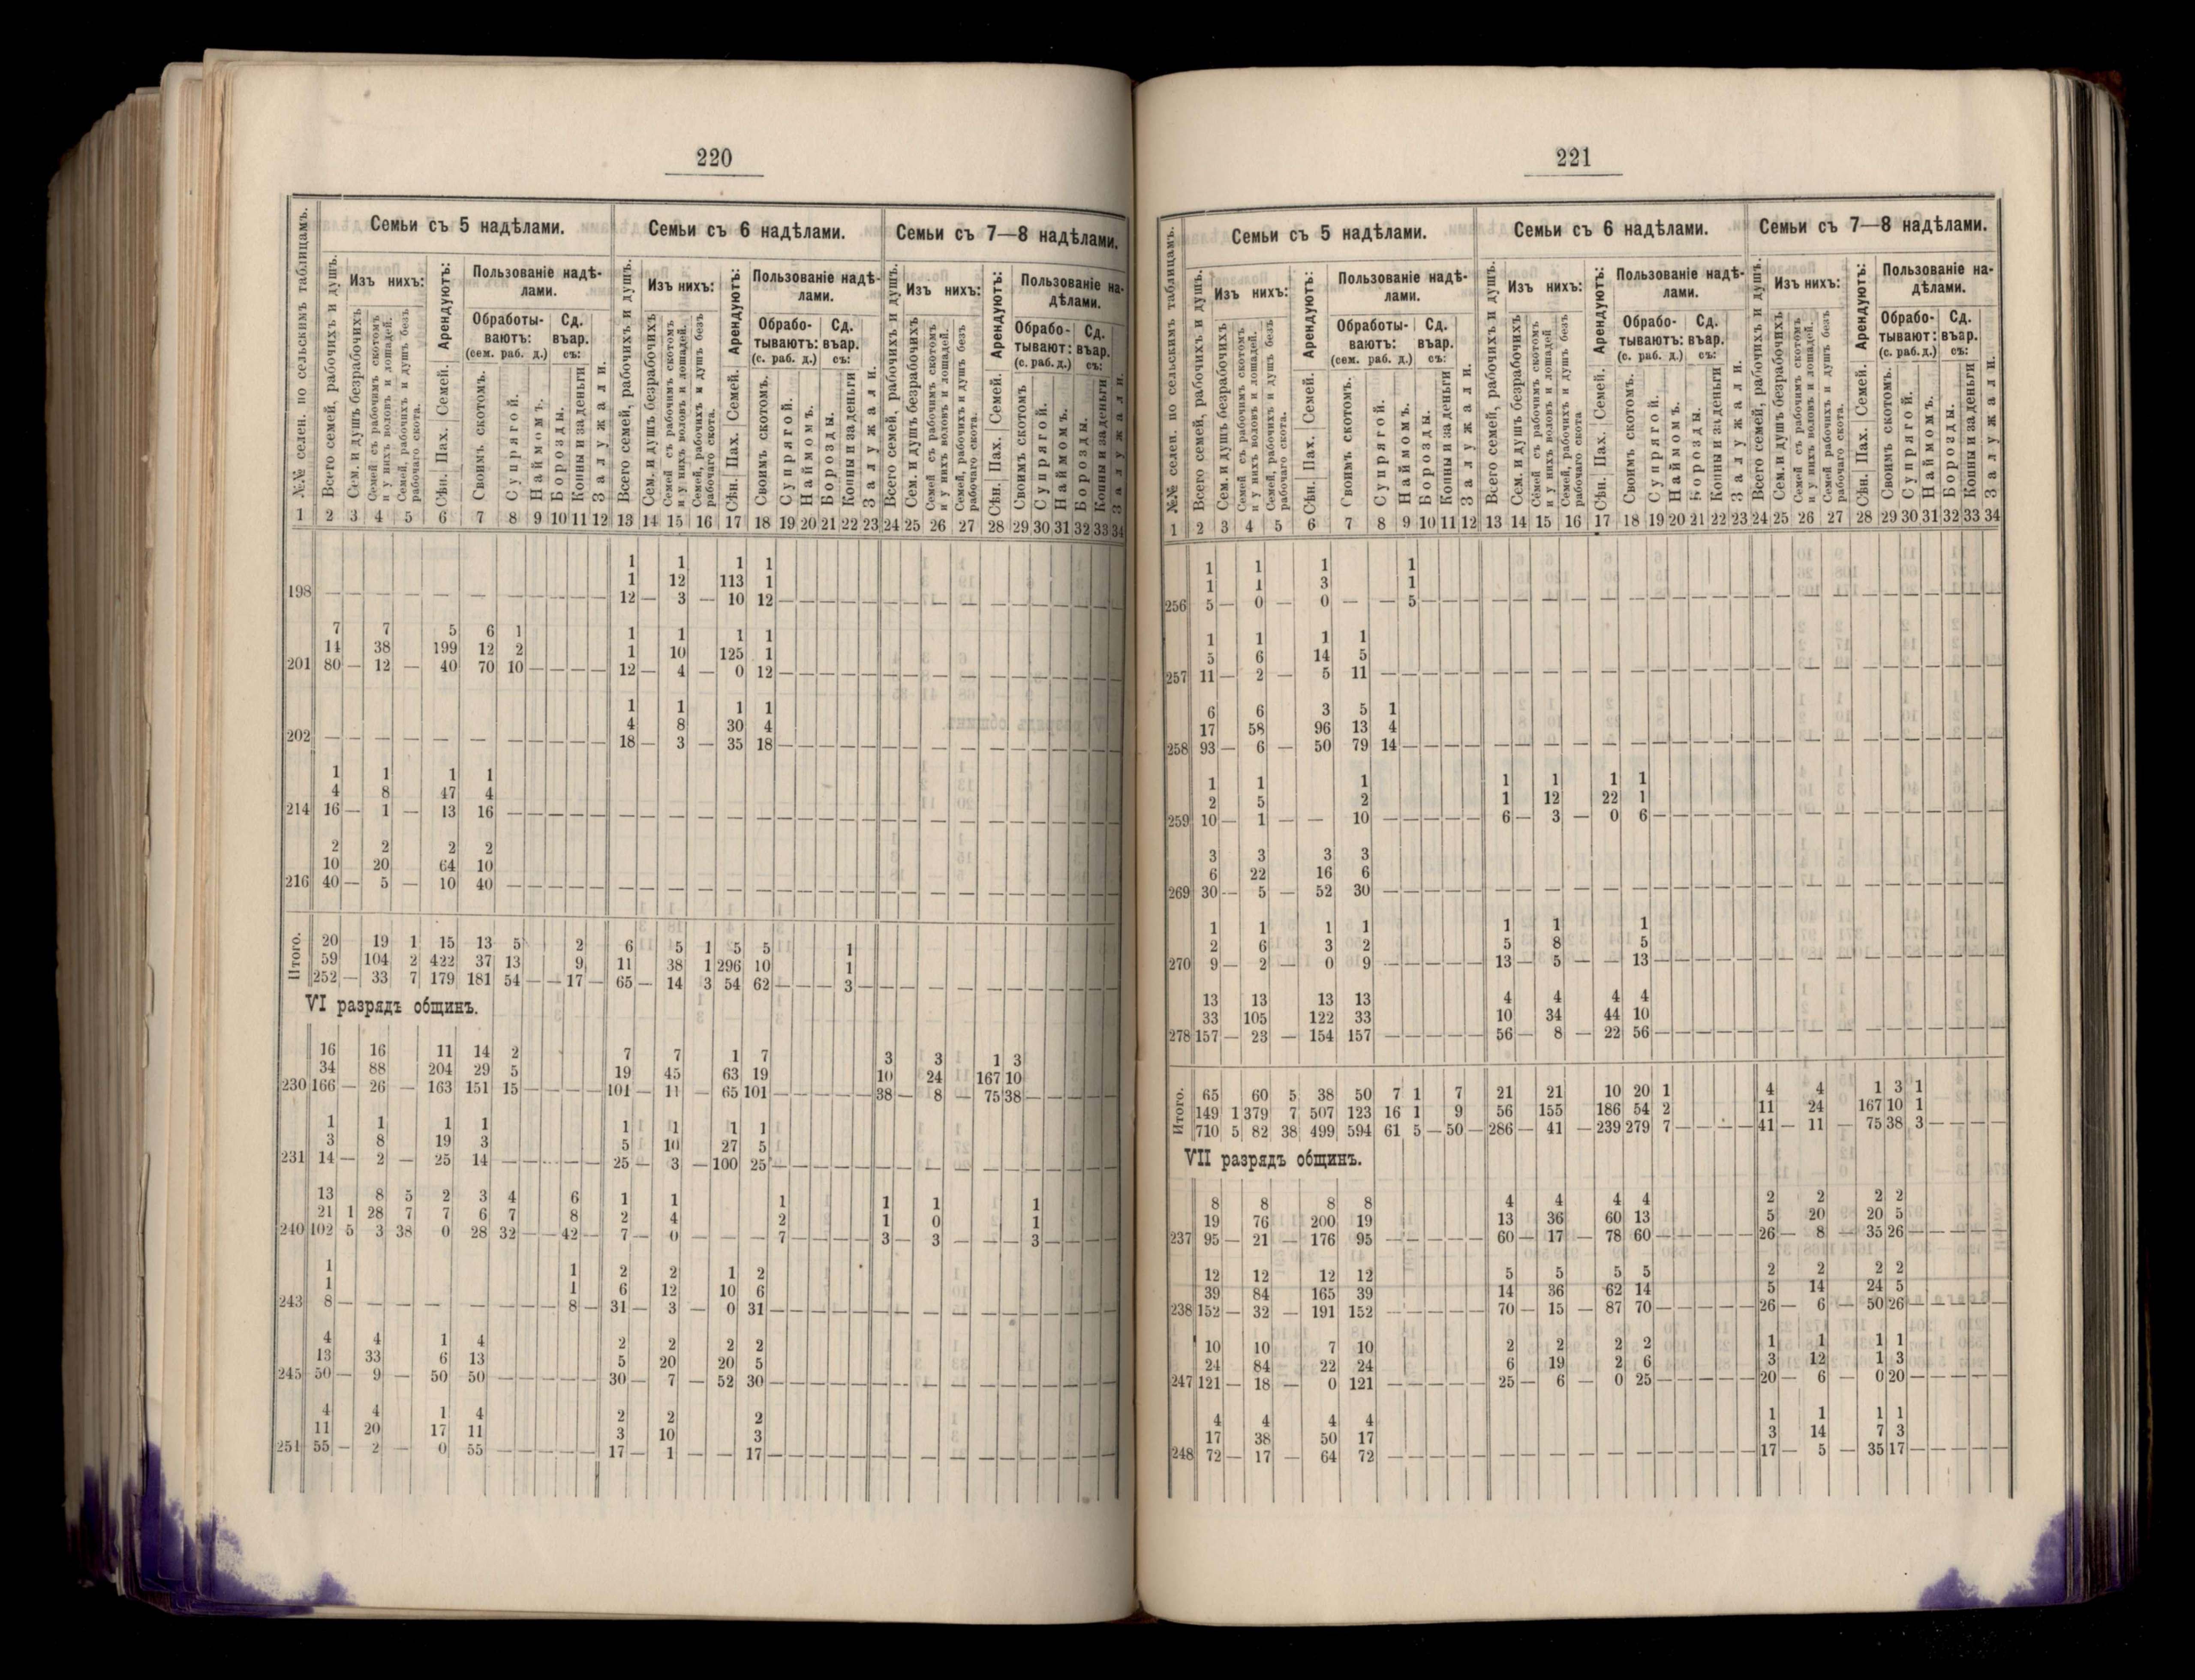 220
№№ селен. по сельскимъ таблицамъ.
Семьи съ 5 надѣлами. Семьи съ 6 надѣлами. Семьи съ 7—8 надѣлами.
Всего семей, рабочихъ и душъ. Изъ нихъ: Арендуютъ: Пользованіе надѣлами.
Сем. и душъ безрабочихъ
Семей съ рабочимъ скотомъ и у нихъ воловъ и лошадей.
Семей, рабочихъ и душъ безъ рабочаго скота.
Сѣн. Пах. Семей.
Обработываютъ: (сем. раб. д.) Сд. въ ар. съ:
Своимъ скотомъ. Супрягой. Наймомъ. Борозды. Копны и за деньги Залужали.
1 2 3 4 5 6 7 8 9 10 11 12 13 14 15 16 17 18 19 20 21 22 23 24 25 26 27 28 29 30 31 32 33 34
1 1 1 1
1 12 113 1
198 — — — — — — — — — — 12 — 3 — 10 12 — — — — — — — — — — — — —
7 7 5 6 1 1 1 1 1
14 38 199 12 2 1 10 125 1
201 80 — 12 — 40 70 10 — — — — 12 — 4 — 0 12 — — — — — — — — — — — —
1 1 1 1
4 8 30 4
202 — — — — — — — — — — 18 — 3 — 35 18 — — — — — — — — — — — —
1 1 1 1
4 8 47 4
214 16 — 1 — 13 16 — — — — — — — — — — — — — — — — — — — —
2 2 2 2
10 20 64 10
216 40 — 5 — 10 40 — — — — — — — — — — — — — — — — — — — —
20 19 1 15 13 5 2 6 5 1 5 5 1
Итого. 59 104 2 422 37 13 9 11 38 1 296 10 1
252 — 33 7 179 181 54 — — 17 — 65 — 14 3 54 62 — — — 3 — — — — — — — — —
VI разрядъ общинъ.
16 16 11 14 2 7 7 1 7 3 3 1 3
34 88 204 29 5 19 45 63 19 10 24 167 10
230 166 — 26 — 163 151 15 — — — — 101 — 11 — 65 101 — — — — — 38 — 8 — 75 38 — — — — —
1 1 1 1 1 1 1 1
3 8 19 3 5 10 27 5
231 14 — 2 — 25 14 — — — — — 25 — 3 — 100 25 — — — — — — — — — — — —
13 8 5 2 3 4 6 1 1 1 1 1 1
21 1 28 7 7 6 7 8 2 4 2 1 0 1
240 102 5 3 38 0 28 32 — — 42 — 7 — 0 — — — 7 — — — — 3 — 3 — — — 3 — — — —
1 1 2 2 1 2
1 1 6 12 10 6
243 8 — — — — — — — — 8 — 31 — 3 — 0 31 — — — — — — — — — — — —
4 4 1 4 2 2 2 2
13 33 6 13 5 20 20 5
245 50 — 9 — 50 50 — — — — — 30 — 7 — 52 30 — — — — — — — — — — — —
4 4 1 4 2 2 2
11 20 17 11 3 10 3
251 55 — 2 — 0 55 — — — — — 17 — 1 — — 17 — — — — — — — — — — — —
221
№№ селен. по сельскимъ таблицамъ.
Семьи съ 5 надѣлами. Семьи съ 6 надѣлами. Семьи съ 7—8 надѣлами.
Всего семей, рабочихъ и душъ. Изъ нихъ: Арендуютъ: Пользованіе надѣлами.
Сем. и душъ безрабочихъ
Семей съ рабочимъ скотомъ и у нихъ воловъ и лошадей.
Семей, рабочихъ и душъ безъ рабочаго скота.
Сѣн. Пах. Семей.
Обработываютъ: (сем. раб. д.) Сд. въ ар. съ:
Своимъ скотомъ. Супрягой. Наймомъ. Борозды. Копны и за деньги Залужали.
1 2 3 4 5 6 7 8 9 10 11 12 13 14 15 16 17 18 19 20 21 22 23 24 25 26 27 28 29 30 31 32 33 34
1 1 1 1
1 1 3 1
256 5 — 0 — 0 — — 5 — — — — — — — — — — — — — — — — — — — —
1 1 1 1
5 6 14 5
257 11 — 2 — 5 11 — — — — — — — — — — — — — — — — — — — —
6 6 3 5 1
17 58 96 13 4
258 93 — 6 — 50 79 14 — — — — — — — — — — — — — — — — — — —
1 1 1 1 1 1 1
2 5 2 1 12 22 1
259 10 — 1 — — 10 — — — — — 6 — 3 — 0 6 — — — — — — — — — — — —
3 3 3 3
6 22 16 6
269 30 — 5 — 52 30 — — — — — — — — — — — — — — — — — — — —
1 1 1 1 1 1 1
2 6 3 2 5 8 5
270 9 — 2 — 0 9 — — — — — 13 — 5 — — 13 — — — — — — — — — — — —
13 13 13 13 4 4 4 4
33 105 122 33 10 34 44 10
278 157 — 23 — 154 157 — — — — — 56 — 8 — 22 56 — — — — — — — — — — — —
65 60 5 38 50 7 1 7 21 21 10 20 1 4 4 1 3 1
Итого. 149 1 379 7 507 123 16 1 9 56 155 186 54 2 11 24 167 10 1
710 5 82 38 499 594 61 5 — 50 — 286 — 41 — 239 279 7 — — — — 41 — 11 — 75 38 3 — — — —
VII разрядъ общинъ.
8 8 8 8 4 4 4 4 2 2 2 2
19 76 200 19 13 36 60 13 5 20 20 5
237 95 — 21 — 176 95 — — — — — 60 — 17 — 78 60 — — — — — 26 — 8 — 35 26 — — — — —
12 12 12 12 5 5 5 5 2 2 2 2
39 84 165 39 14 36 62 14 5 14 24 5
238 152 — 32 — 191 152 — — — — — 70 — 15 — 87 70 — — — — — 26 — 6 — 50 26 — — — — —
10 10 7 10 2 2 2 2 1 1 1 1
24 84 22 24 6 19 2 6 3 12 1 3
247 121 — 18 — 0 121 — — — — — 25 — 6 — 0 25 — — — — — 20 — 6 — 0 20 — — — — —
4 4 4 4 1 1 1 1
17 38 50 17 3 14 7 3
248 72 — 17 — 64 72 — — — — — — — — — — — — — — — 17 — 5 — 35 17 — — — — —